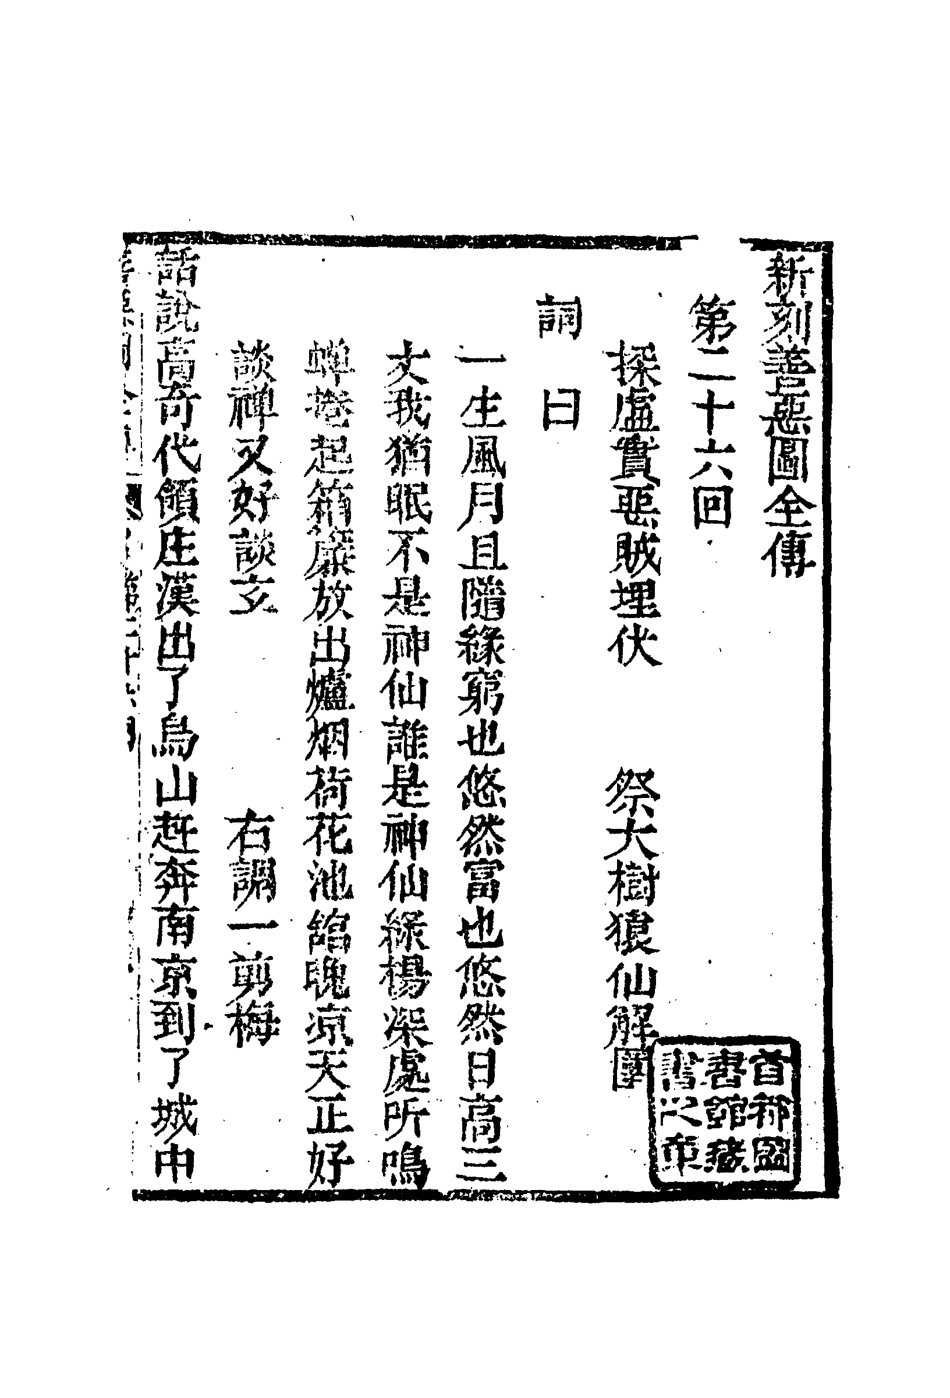 新刻善惡圖全傳
第二十六回
探虛實惡賊埋伏　祭大樹猿仙解圍
詞曰
一生風月且隨緣窮也悠然富也悠然日高三
丈我猶眠不是神仙誰是神仙綠楊深處所鳴
蟬捲起箱簾放出爐烟荷花池舘晚凉天正好
談禪又好談玄　右調一剪梅
話說高奇代領庄漢出了烏山赶奔南京到了城中
首都圖
書舘藏
書之章